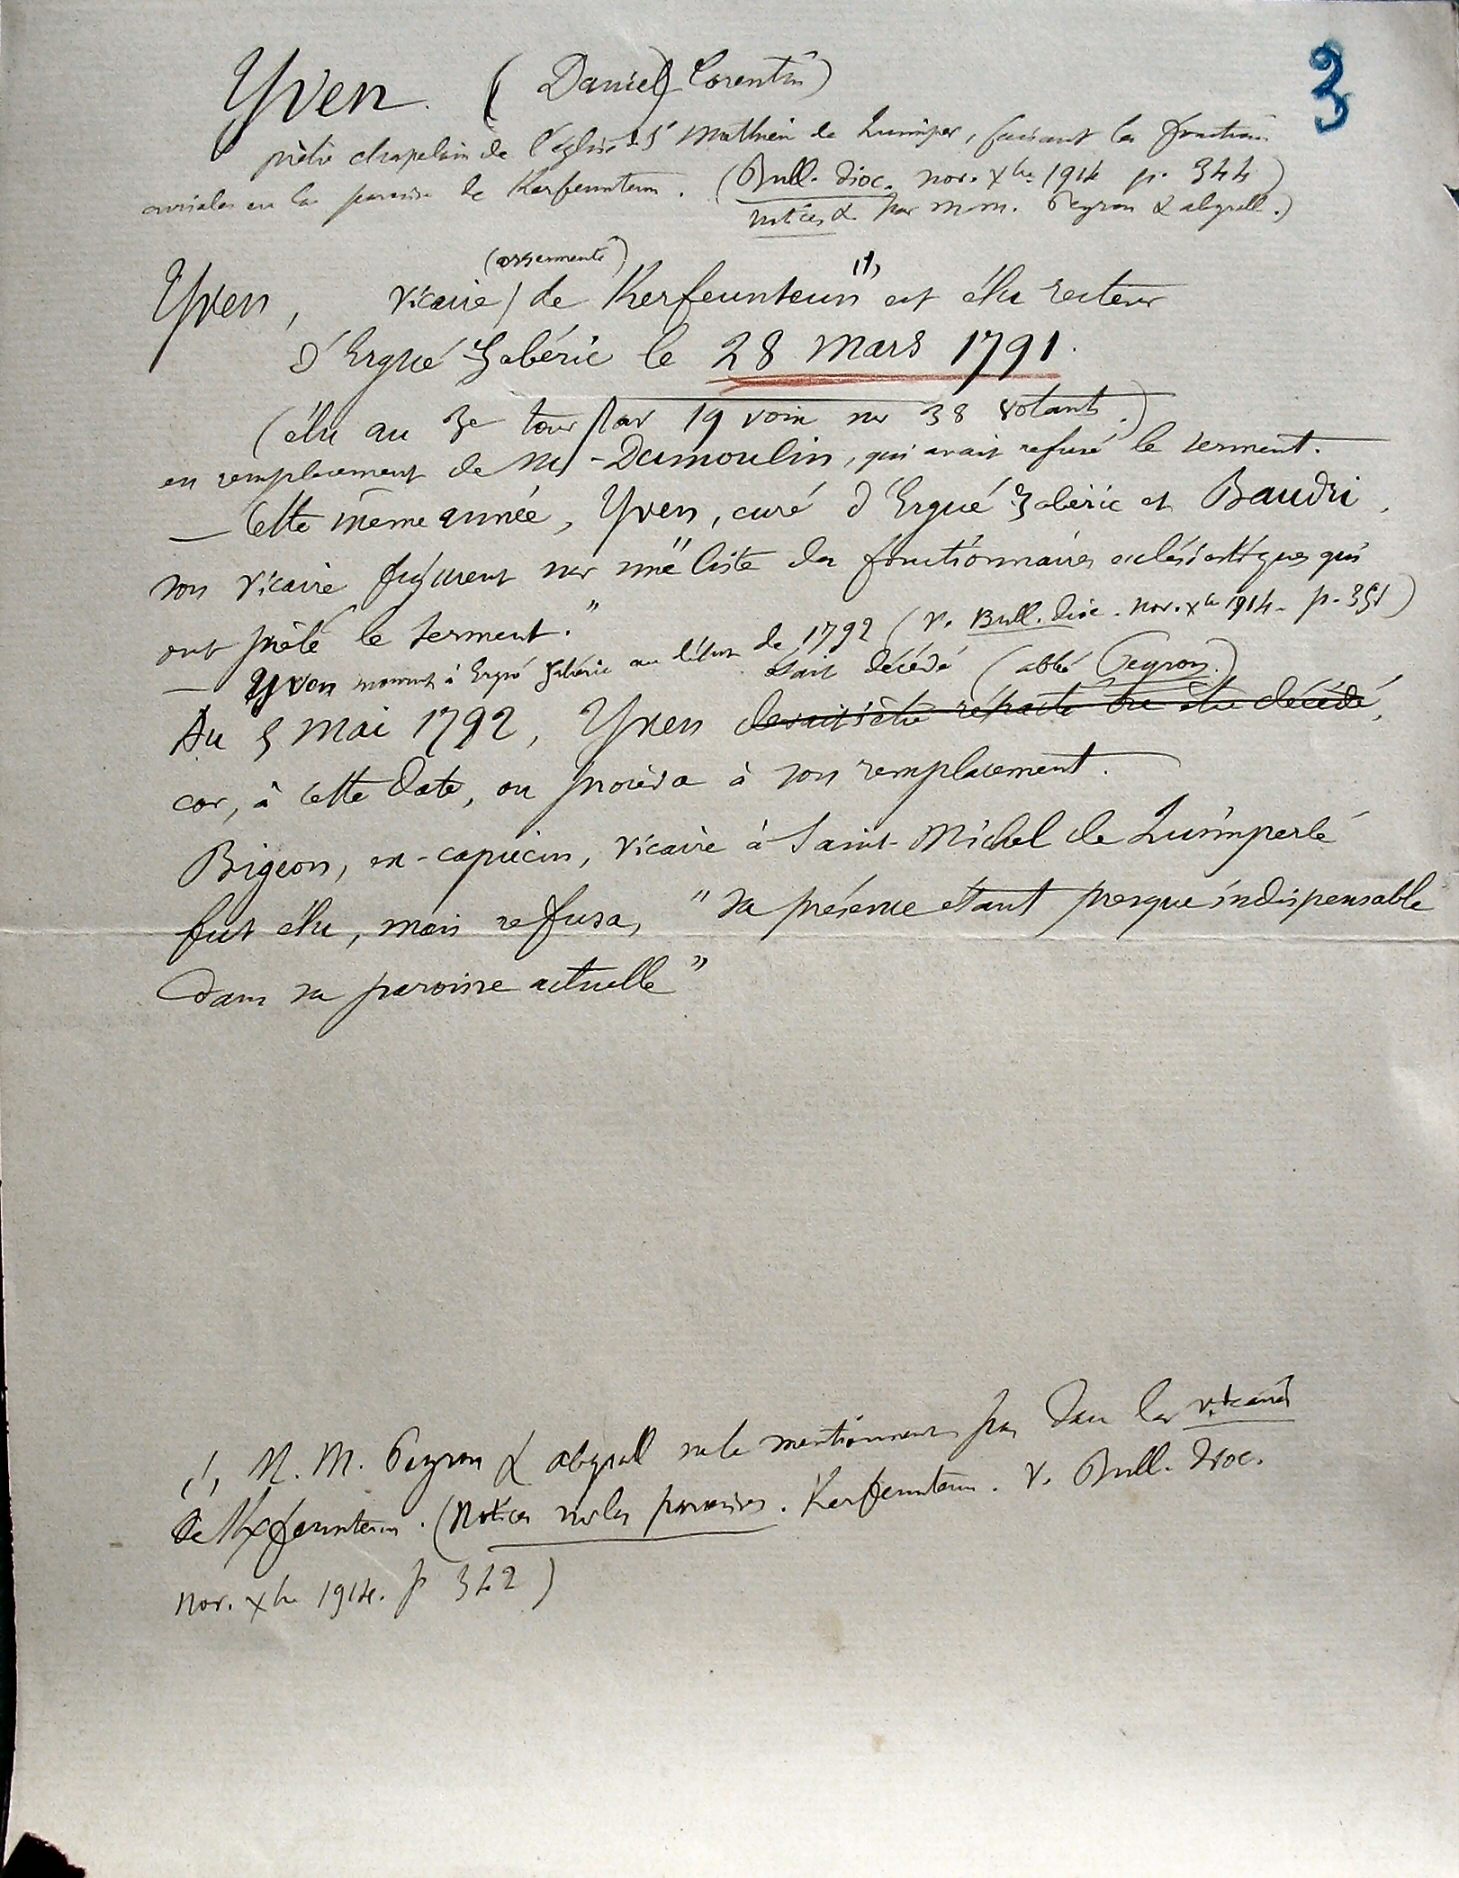 3
Yven. (Daniel) Corentin)
prêtre chapelain de l'église St Mathieu de Quimper, faisant les fonctions
curiales en la paroisse de Kerfeunteun. (Bull. dioc. nov. Xbre 1914 p. 344)
notices & par MM. Peyron & Abgrall.)
(assermenté)
Yven, vicaire / de Kerfeunteun (1) est élu recteur
d'Ergué Gabéric le 28 Mars 1791.
(élu au 3e tour par 19 voix sur 38 votants.)
en remplacement de M. Dumoulin, qui avait refusé le serment.
— Cette même année, Yven, curé d'Ergué Gabéric et Baudri,
son vicaire figurent sur une "liste des fonctionnaires eclésiastiques qui
ont prêté le serment."
— Yven mourut à Ergué Gabéric au début de 1792 (V. Bull. dioc. nov. Xbre 1914. p. 351)
était décédé (abbé Peyron.)
Au 5 Mai 1792, Yven devait s'être rétracté ou être décédé,
car, à cette date, on procéda à son remplacement.
Bigeon, ex-capucin, vicaire à Saint-Michel de Quimperlé
fut élu, mais refusa, "sa présence étant presque indispensable
dans sa paroisse actuelle"
(1) M. M. Peyron & Abgrall ne le mentionnent pas dans les vicaires
de Kerfeunteun. (Notices sur les paroisses. Kerfeunteun. V. Bull. dioc.
nov. Xbre 1914. p 342)